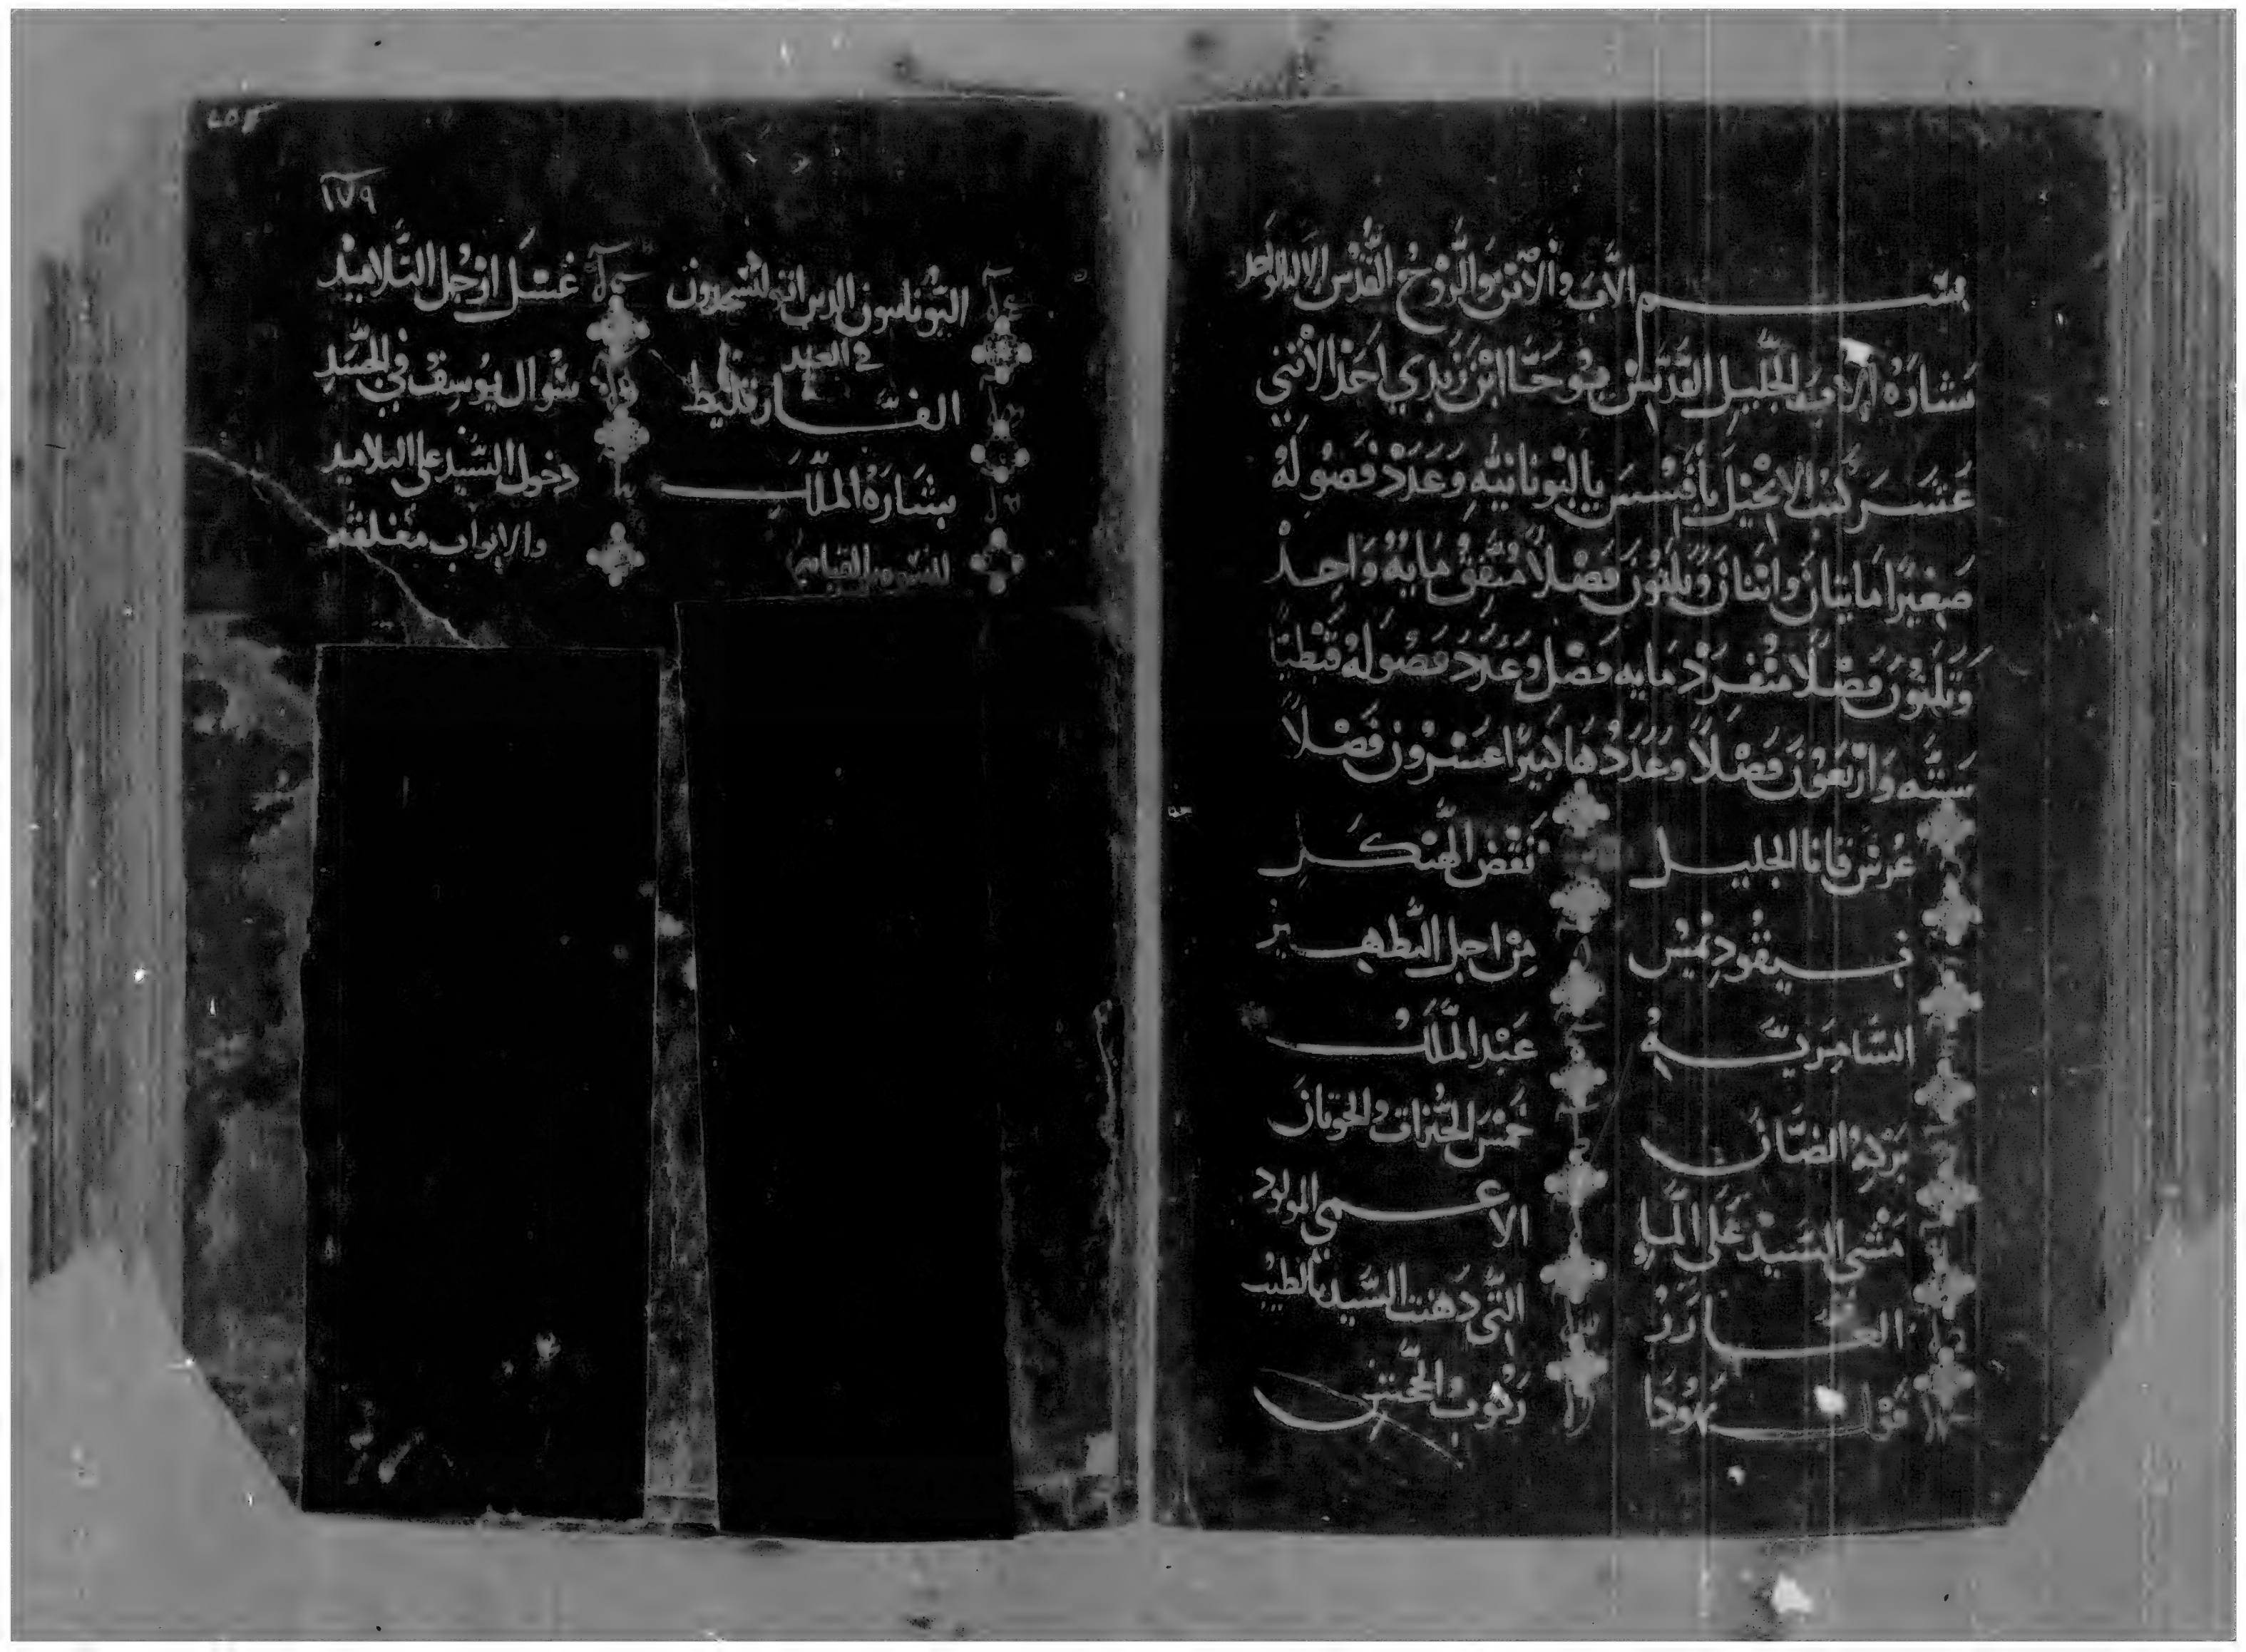 بسم الاب والابن والروح القدس الاله الواحد
بشارة الاب الجليل القديس يوحنا ابن زبدي احد الاثني
عشر كتب الانجيل بافسس باليونانية وعدد فصوله
صغيرا مايتان واثنان وثلثون فصلا متفق مايه واحد
وثلثون فصلا منفرد مايه فصل وعدد فصوله قبطيا
ستة واربعون فصلا وعددها كبيرا عشرون فصلا
عرس قانا الجليل
نقض الهيكل
نيقوديميس
من اجل التطهير
السامرية
عبد الملك
بركة الضان
خمس الخبزات والحوتان
مشي السيد على الماء
الاعمى المولود
العازر
التي دهنت السيد بالطيب
قول يهودا
ركوب الجحش
١٧٩
اليونانيون الدين اتوا ليسجدون
في العيد
الفارقليط
بشارة الملاك
للنسوه بالقيامه
غسل ارجل التلاميد
سوال يوسف في الجسد
دخول السيد على التلاميد
والابواب مغلقه